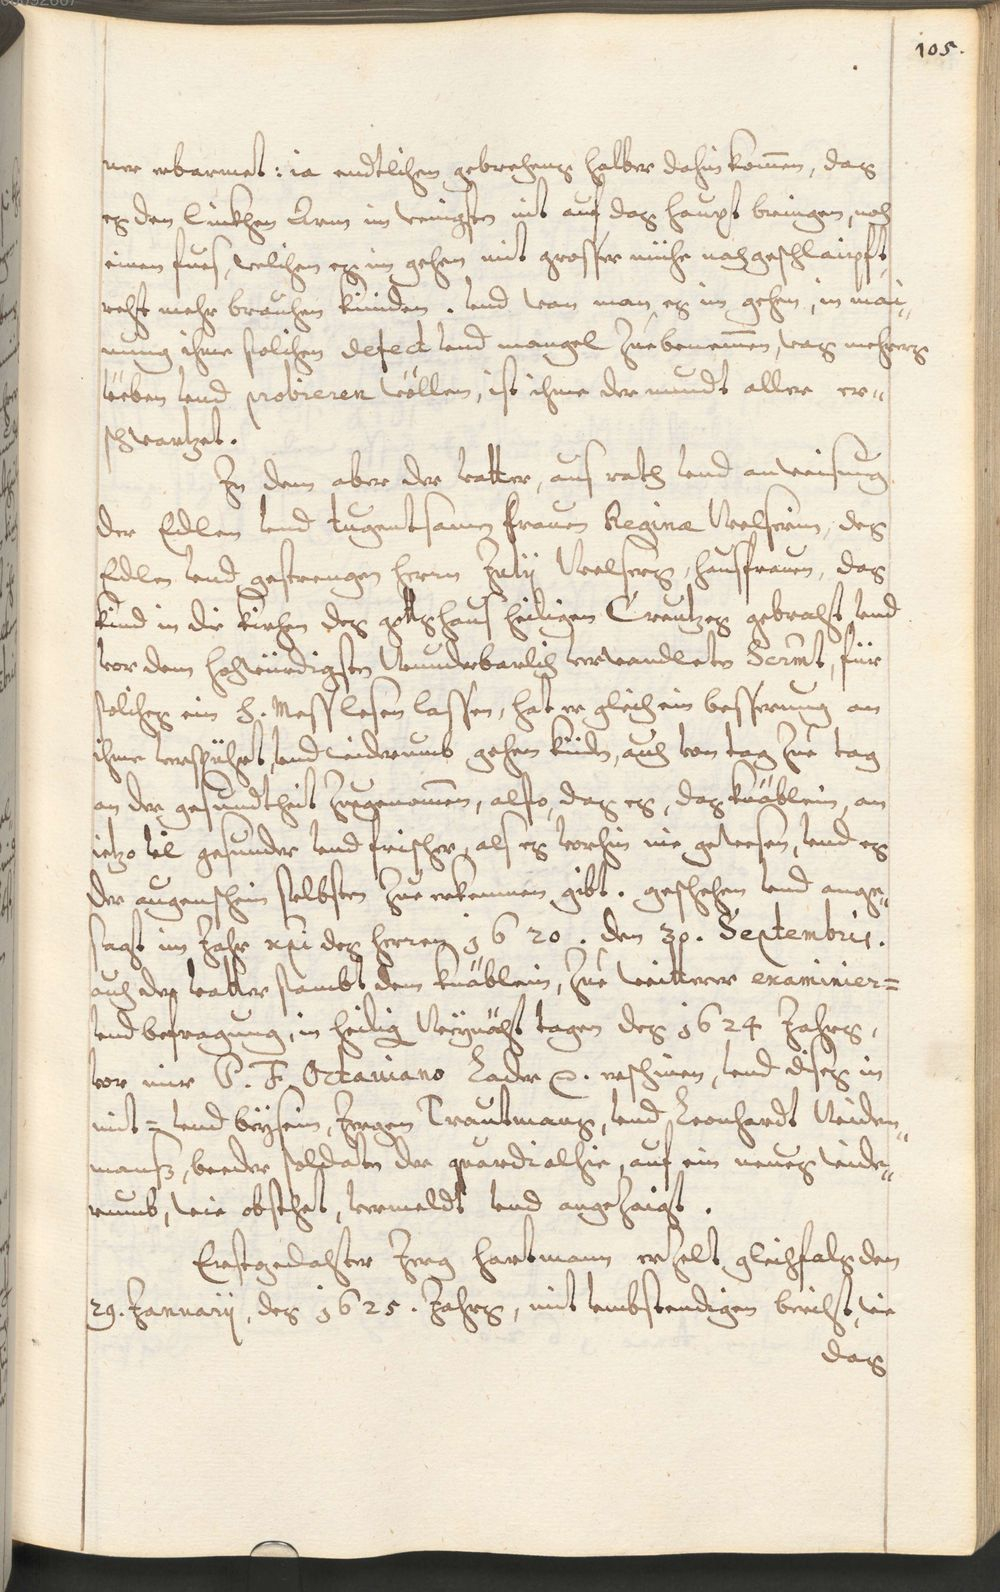 105.
ner erbarmet: ia endtlichen gebrechens halber dahin kom̄en, das
es den linckhen Arm im wenigsten nit auf das haupt bringen, noch
einen fues, welichen es im gehen mit grosser mühe nachgeschlaipft,
recht mehr brauchen künden. Und wan man es im gehen, in mai„
nung ihme solichen defect und mangel zue benem̄en, was mehrers
üeben und probieren wöllen, ist ihme der mundt aller er„
schwartzet.
In dem aber der vatter, aus rath und anweisung
der Edlen und tugentsamen frauen Reginæ Welserin, des
Edlen und gestrengen herrn Julij Welsers, hausfrauen, das
kind in die kirchen des gottshaus heiligen Creutzes gebracht und
vor dem hochwürdigsten Wunderbarlich verwandleten Sacrmt, für
soliches ein h. Mess lesen lassen, hat er gleich ein besserung an
ihme verspührt, und widerumb gehen künden, auch von tag zue tag
an der gesundtheit zuegenom̄en, also, das es, das knäblein, an
ietzo vil gesunder und frischer, als es vorhin nie gewesen, und es
der augenschein selbsten zue erkennen gibt. geschehen und ange„
sagt im Jahr xpi des herren 1620. den 30. Septembris.
auch der vatter sambt dem knäblein, zue weitterer examinier=
und befragung, in heilig Weÿnächt tagen des 1624 Jahrs,
vor mir P. F. Octauiano Lader erschinen, und dises in
mit= und beÿsein, Jergen Trautmans, und Leonhardt Weiden„
mans, beeder soldaten der guardi alhie, auf ein neues wide„
rumb, wie obsthet, vermeldt und angezaigt.
Erstgedachter Jerg hartmann erzelt gleichfals den
29. Januarij, des 1625. Jahrs, mit umbstendigem bericht, wie
das